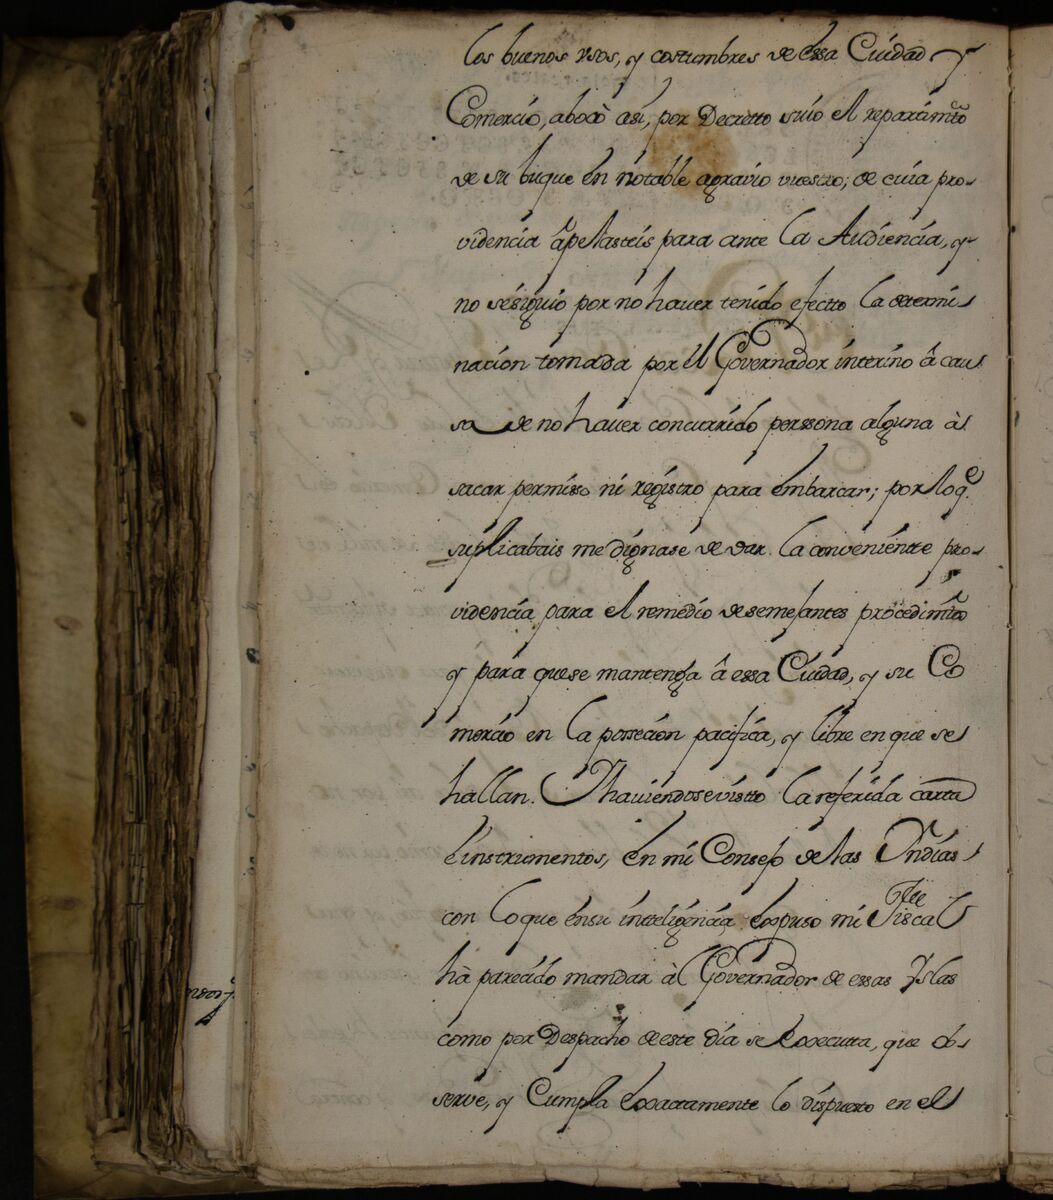 los buenos vsos, y costumbres de essa Ciudad y
Comercio, abocò asi, por Decretto suio el repartimto
de su buque en notable agravio vuestro; de cuia pro-
videncia apelasteis para ante la Audiencia, y
no sesiguio por no haver tenido efectto la determi
nacion tomada por el Governador interino â cau
sa de no haver concurrido perssona alguna à
sacar permisso ni registro para embarcar; por loq.e
suplicabais me dignase de dar la conveniente pro-
videncia para el remedio desemejantes procedimtos
y para quese mantenga â essa Ciudad, y su Co
mercio en la possecion pacifica, y libre en que se
hallan. Yhaviendosevistto la referida carta
è instrumentos, en mi Consejo delas Yndias
con loque ensu inteligencia expuso mi Fiscal
hà parecido mandar àl Governador de essas Yslas
como por Despacho deeste dia se executta, que ob
serve, y Cumpla exactamente lo dispuesto en el